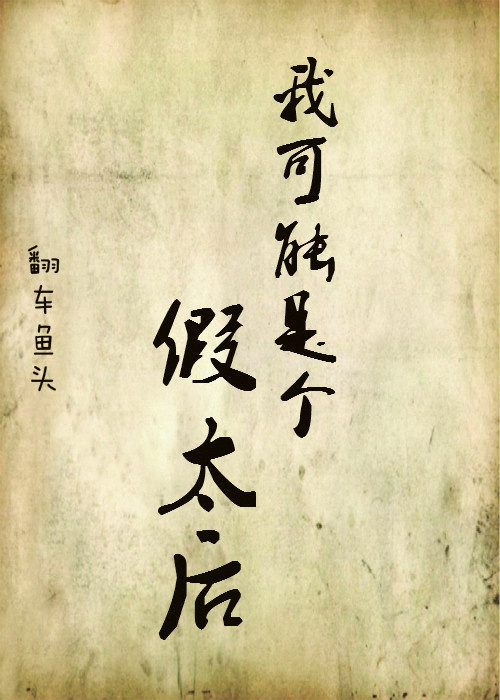 我可能是个
假太后
翻车鱼头